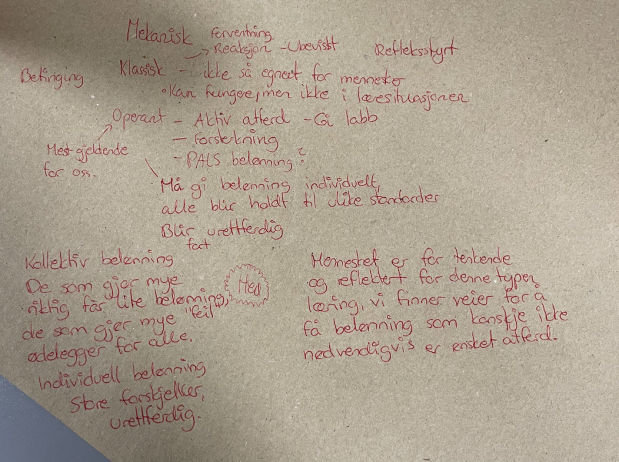 Mekanisk forventning
Reaksjon - Ubevisst Refleksstyrt
Betinging Klassisk - ikke så egnet for mennesker
• Kan fungere, men ikke i læresituasjoner
Operant - Aktiv atferd - Gi labb
- Forsterkning
Mest gjeldende
for oss.
- PALS belønning?
Må gi belønning individuelt,
alle blir holdt til ulike standarder
Blir urettferdig
fort
Kollektiv belønning
De som gjør mye
riktig får lite belønning,
de som gjør mye "feil"
ødelegger for alle.
Individuell belønning
Store forskjeller,
urettferdig.
Mennesket er for tenkende
og reflektert for denne typen
læring, vi finner veier for å
få belønning som kanskje ikke
nødvendigvis er ønsket atferd.